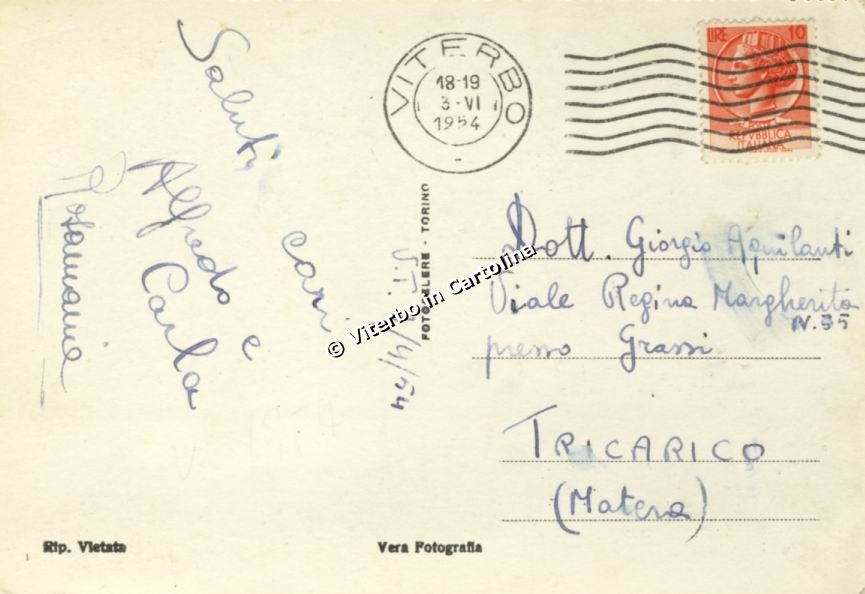 VITERBO
18-19
3-VI
1954
LIRE 10
POSTE
REPVBBLICA
ITALIANA
Saluti cari
Alfredo e
Carla
Rosamaria
FOTOCELERE - TORINO
© Viterbo in Cartolina
Dott. Giorgio Aquilanti
Viale Regina Margherita
N. 35
presso Grassi
TRICARICO
(Matera)
Rip. Vietata
Vera Fotografia